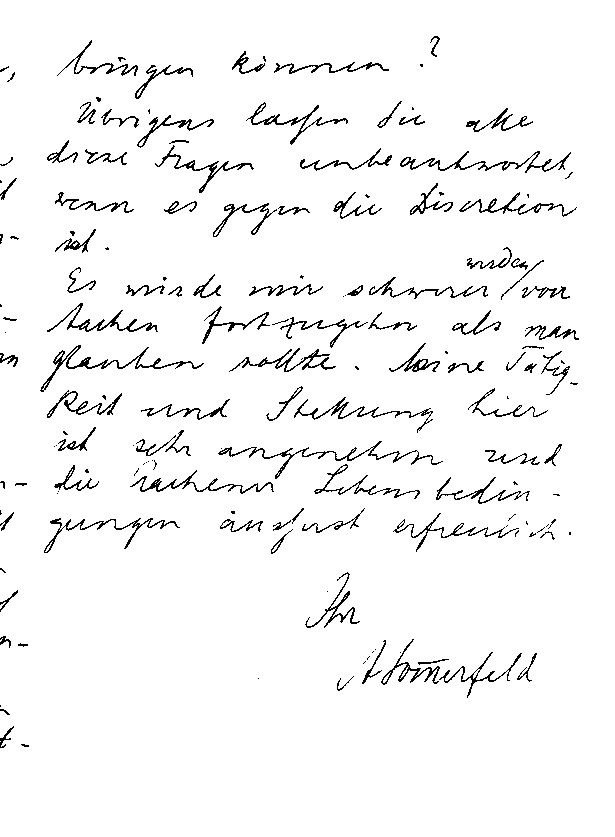 bringen können?
Übrigens lassen Sie alle
diese Fragen unbeantwortet,
wenn es gegen die Discretion
ist.
Es würde mir schwerer werden von
Aachen fortzugehn als man
glauben sollte. Meine Tätig-
keit und Stellung hier
ist sehr angenehm und
die Aachener Lebensbedin-
gungen äusserst erfreulich.
Ihr
A Sommerfeld